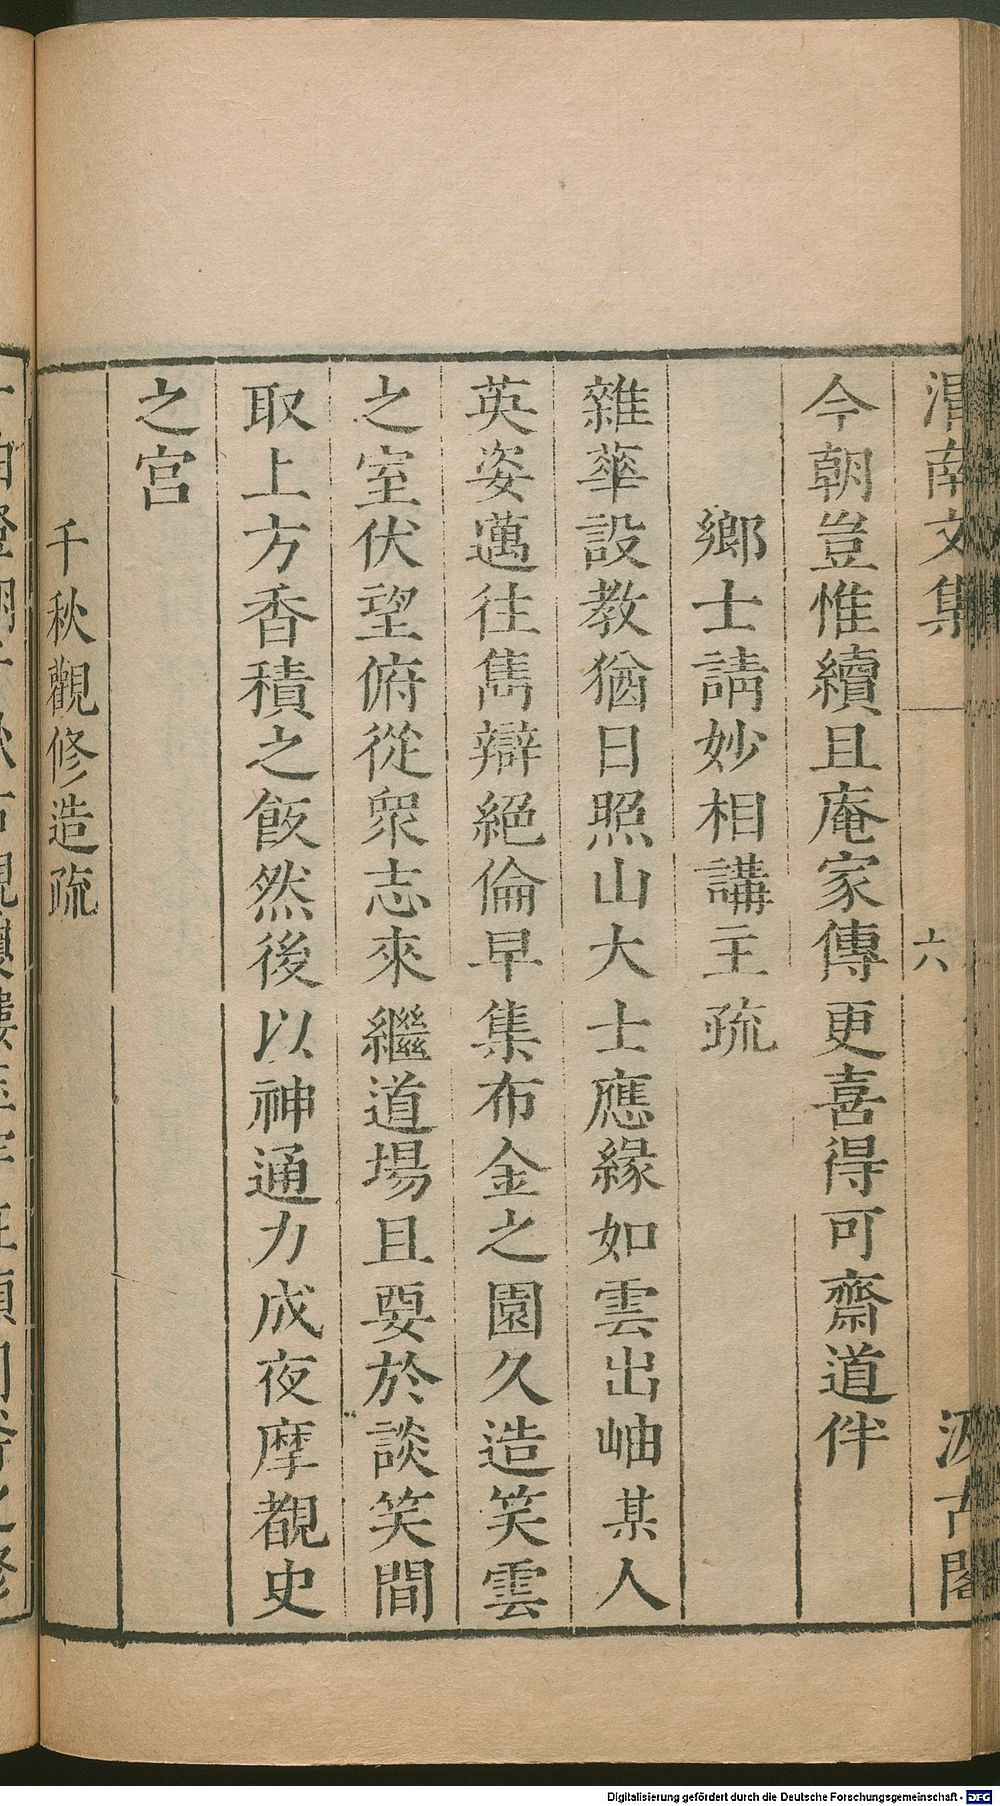 渭南文集 六 汲古閣
今朝豈惟續且庵家傳更喜得可齋道伴
鄉士請妙相講主疏
雜華設教猶日照山大士應緣如雲出岫某人
英姿邁往雋辯絕倫早集布金之園久造笑雲
之室伏望俯從眾志來繼道場且要於談笑間
取上方香積之飯然後以神通力成夜摩覩史
之宮
千秋觀修造疏
Digitalisierung gefördert durch die Deutsche Forschungsgemeinschaft - DFG